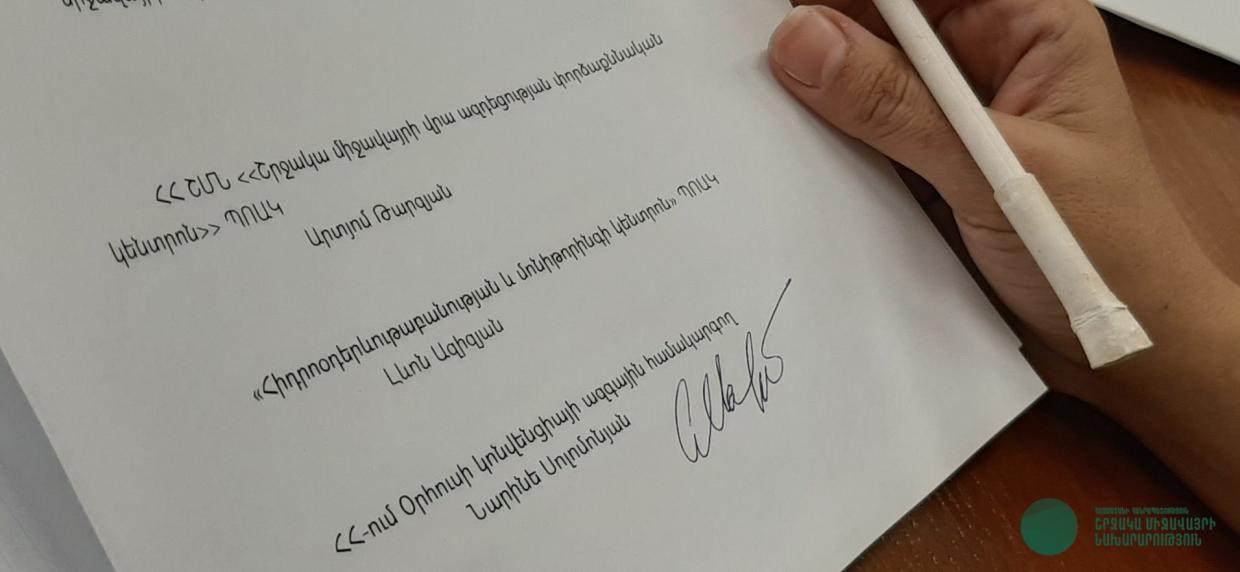 ՀՀ ՇՄՆ <<Շրջակա միջավայրի վրա ազդեցության փորձաքննական
կենտրոն>> ՊՈԱԿ
Արտյոմ Թարգյան
«Հիդրոօդերևութաբանության և մոնիթորինգի կենտրոն» ՊՈԱԿ
Լևոն Ազիզյան
ՀՀ-ում Օրհուսի կոնվենցիայի ազգային համակարգող
Նարինե Սոլոմոնյան
ՀԱՅԱՍՏԱՆԻ ՀԱՆՐԱՊԵՏՈՒԹՅՈՒՆ
ՇՐՋԱԿԱ ՄԻՋԱՎԱՅՐԻ
ՆԱԽԱՐԱՐՈՒԹՅՈՒՆ